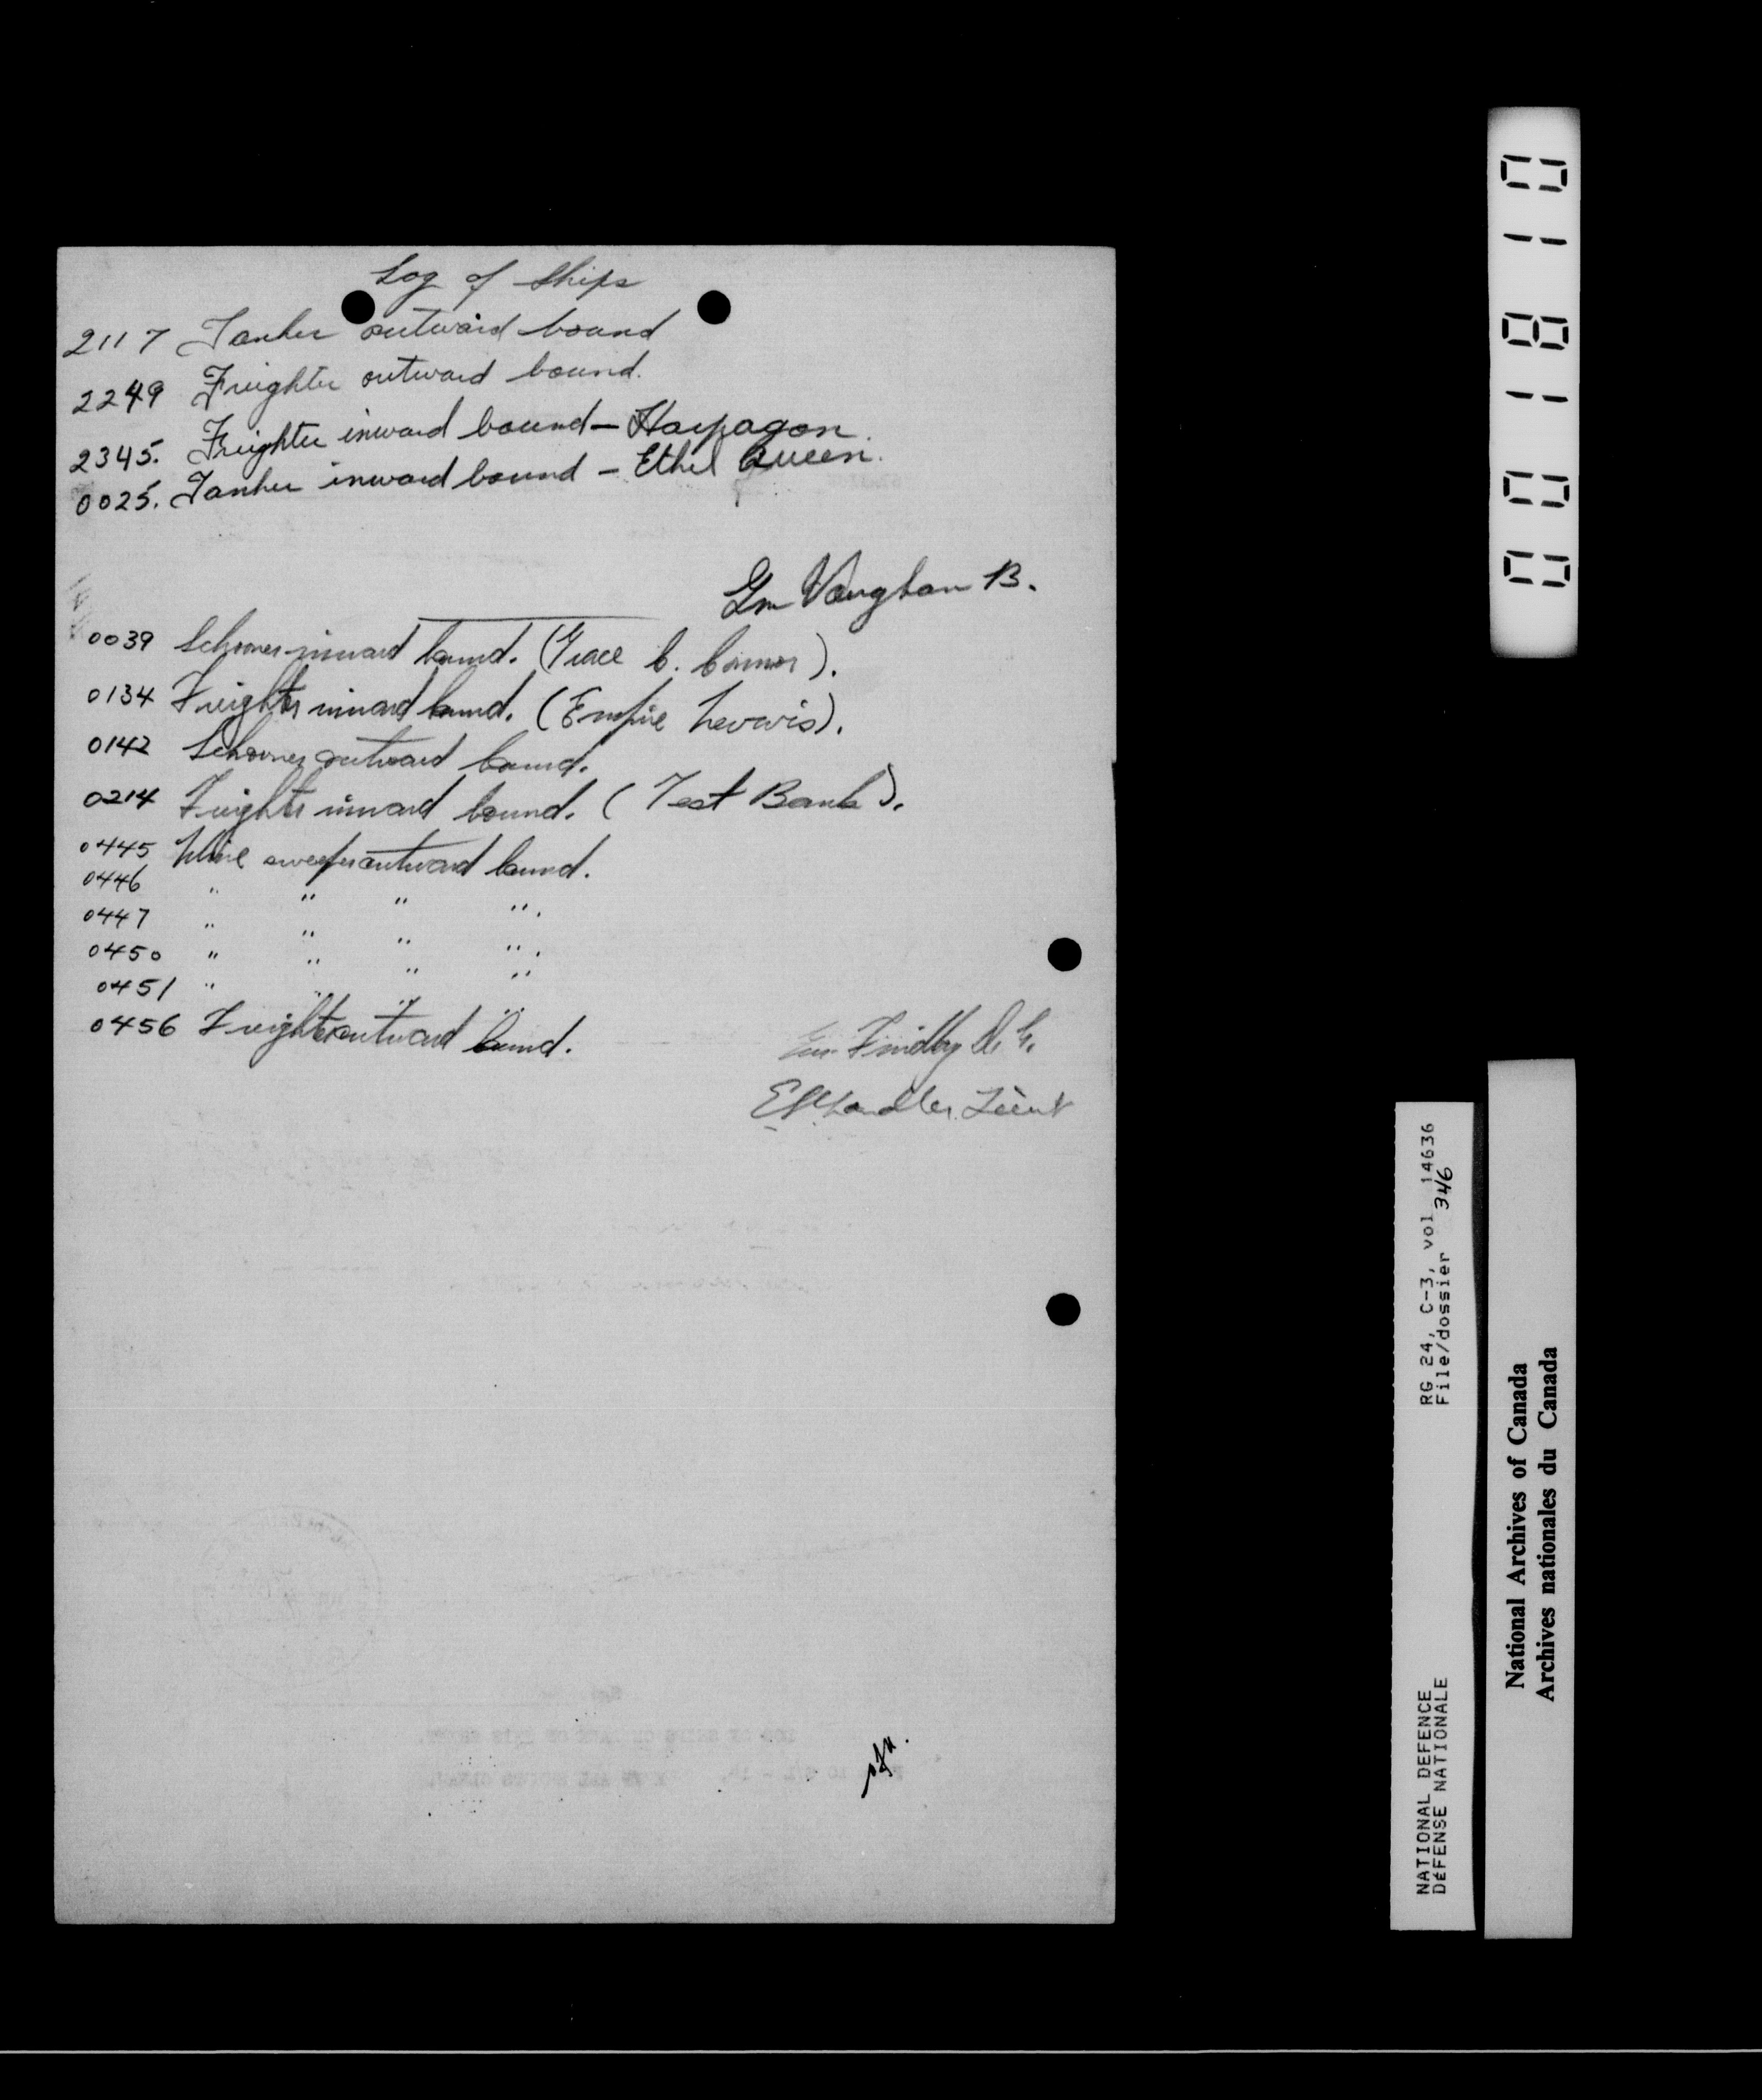 Log of Ships
2117 Tanker outward bound
2249 Freighter outward bound.
2345. Freighter inward bound — Harpagon.
0025. Tanker inward bound — Ethel Queen.
Gnr Vaughan B.
0039 Schooner inward bound. (Grace C.
0134 Freighter inward bound. (Empire
0142 Schooner outward bound.
0214 Freighter inward bound. (Test Bank).
0445 Mine sweeper outward bound.
0446 " " " ".
0447 " " " ".
0450 " " " "
0451 " " " "
0456 Freighter outward bound.
Gnr. Findlay
Chandler. Lieut
001810
RG 24, C-3, vol 14636
File/dossier 346
NATIONAL DEFENCE
DÉFENSE NATIONALE
National Archives of Canada
Archives nationales du Canada